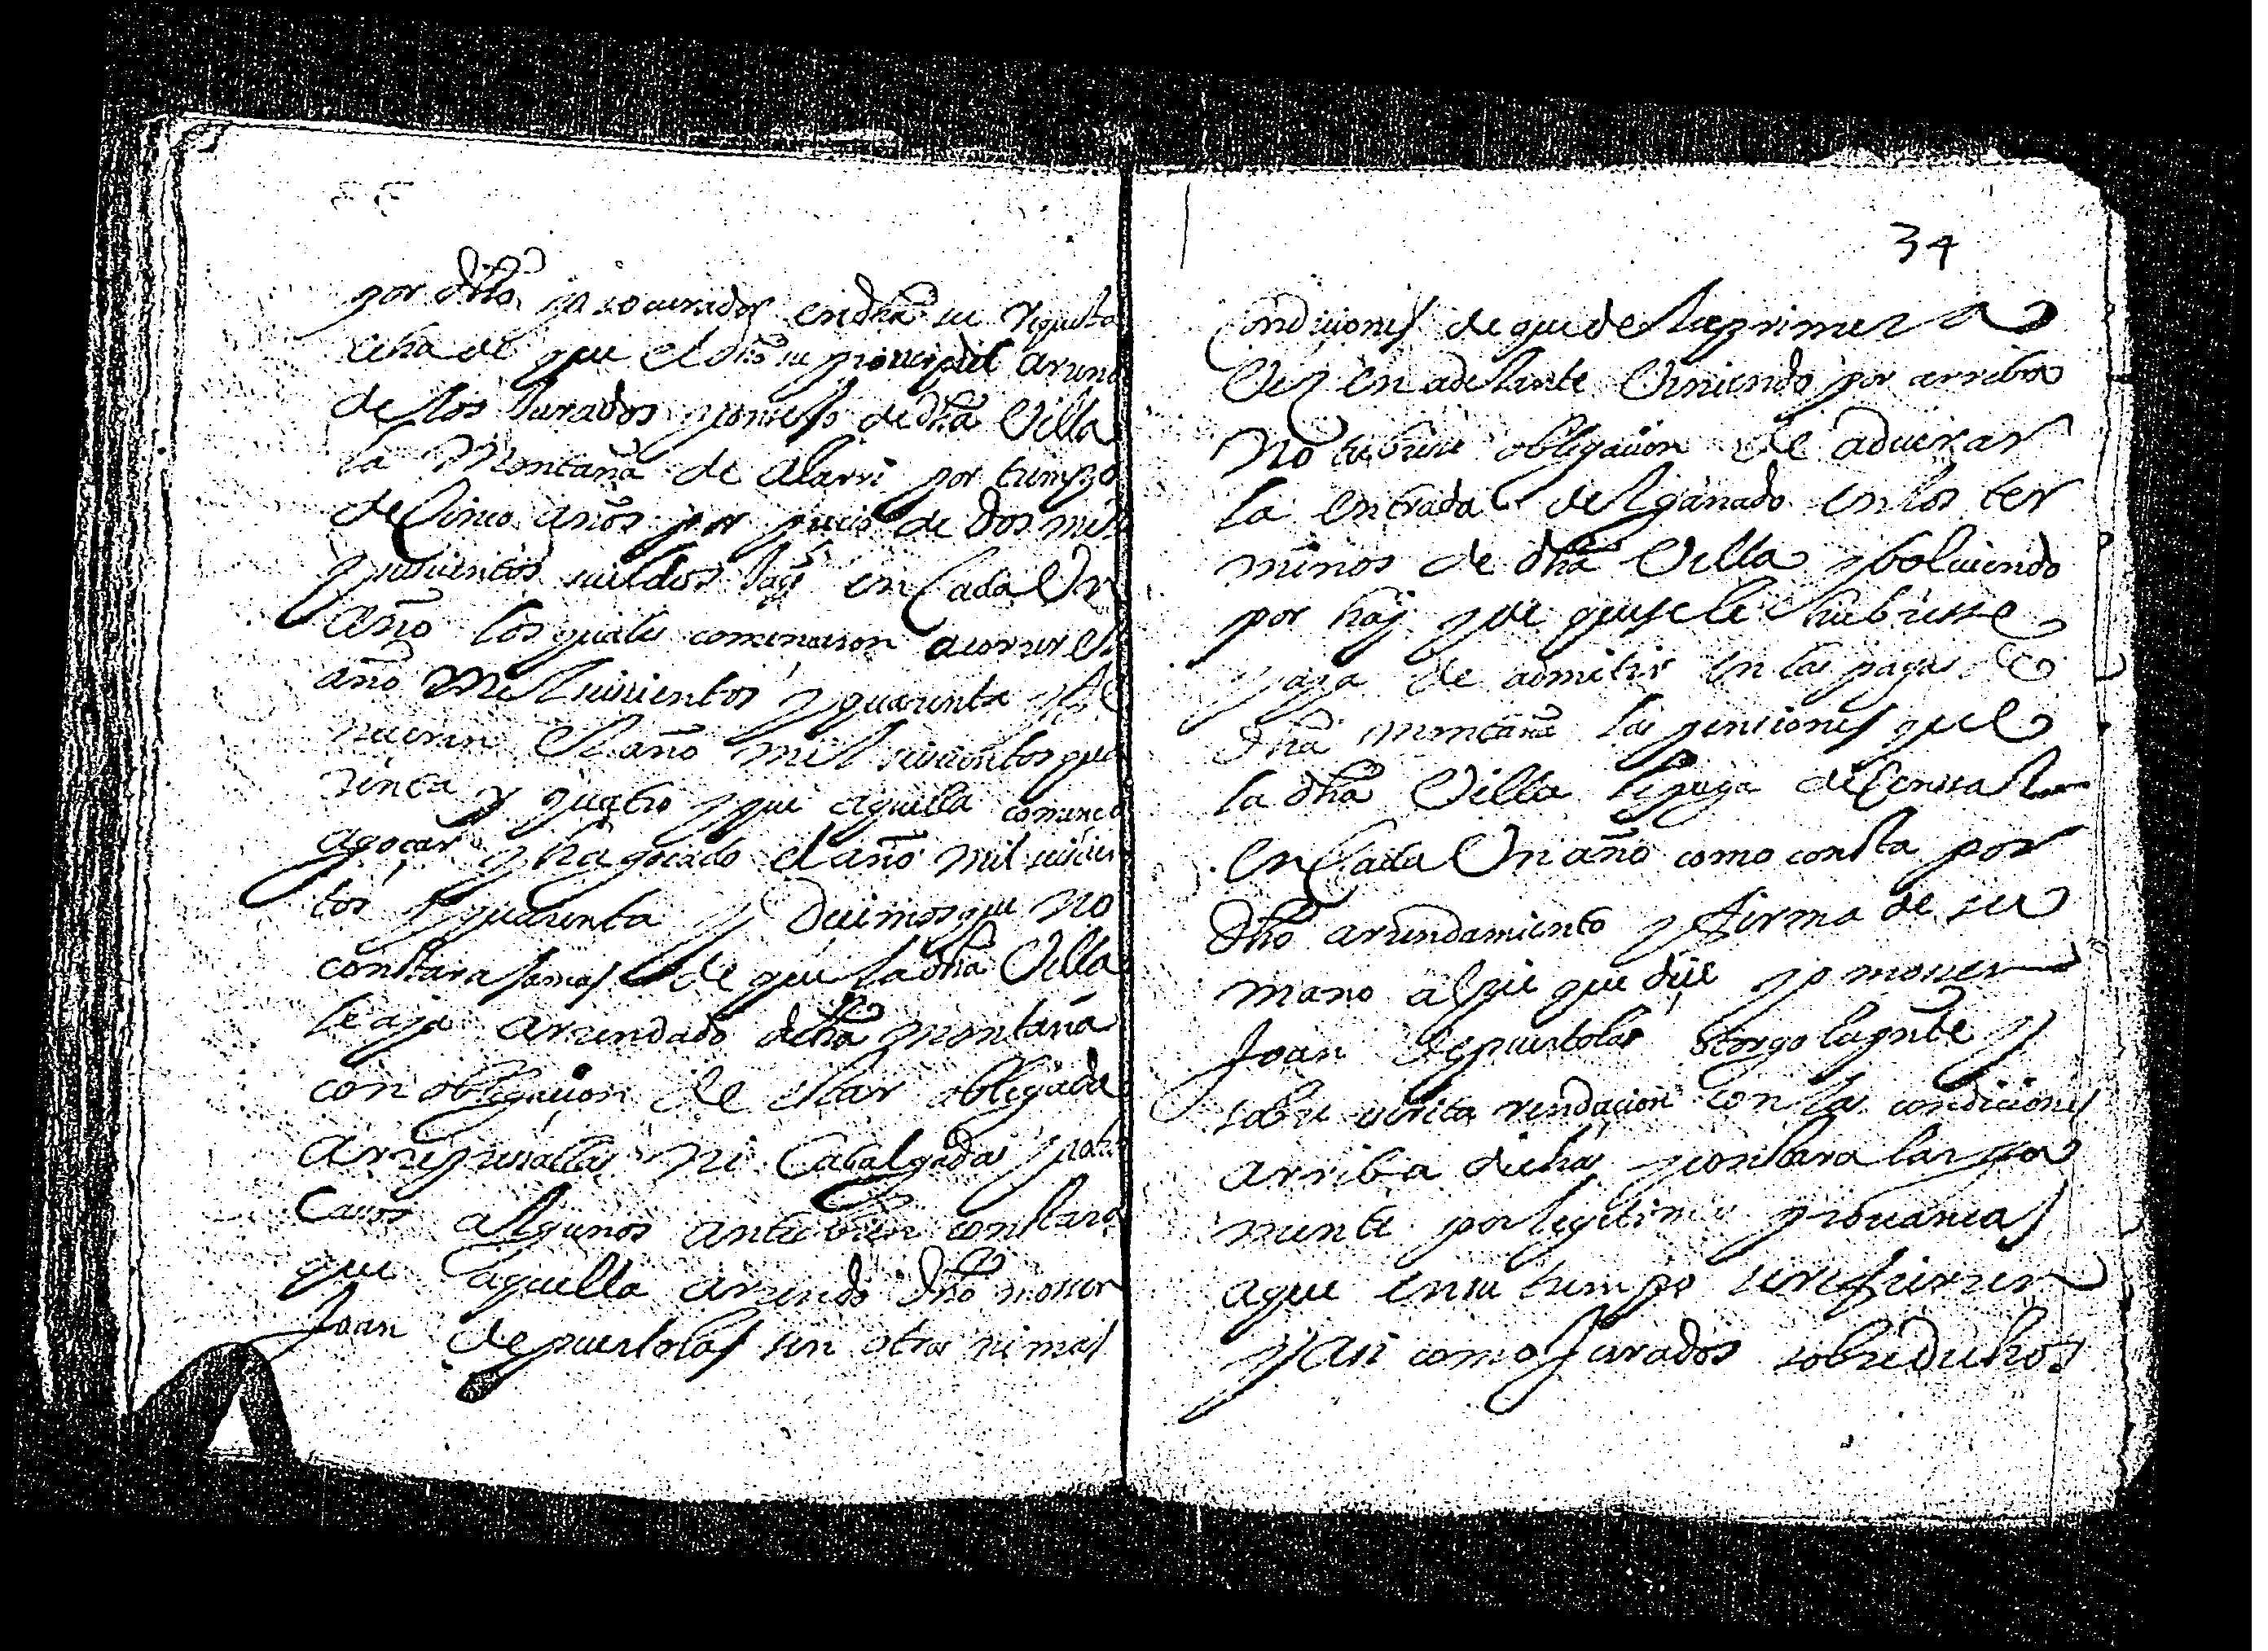 por dho procurador en dha su requesta
echa de que el dho su principal arund
de los Jurados y concejo de dha Villa
la Montaña de alarri por tiempo
de Cinco años por precio de dos mil
quinientos sueldos Jaqs en Cada Un
Año los quales comencaron a correr el
año Mil seiscientos y quarenta
el año mil seiscientos qua
renta y quatro y que aquella comenco
a gocar y ha gocado el año mil seiscien
tos y quarenta y Decimos que no
constara Jamas de que la dha Villa
le aya arrendado dicha montaña
con obligacion de estar obligada
a represallas ni Cabalgadas
Casos algunos antes bien constara
que aquella arrendo dho mossen
Joan de puertolas sin otras ni mas
34
Condiciones de que de la primera
Vez en adelante Viniendo por arriba
No tubiese obligacion de aduerar
la entrada del ganado en los ter
minos de dha Villa y bolviendo
por hay que se le hubiesse
de admitir en las pagas de
dha montaña las pensiones que
la dha Villa le paga de Censsal
en Cada Un año como consta por
dho arrendamiento y firma de su
mano al pie que dice yo mossen
Joan de puertolas otorgo la pnte
sobre escrita rendacion con las condiciones
arriba dichas y constara larga
mente por legitimas provancas
a que en su tiempo se refieren
y asi como Jurados sobredichos